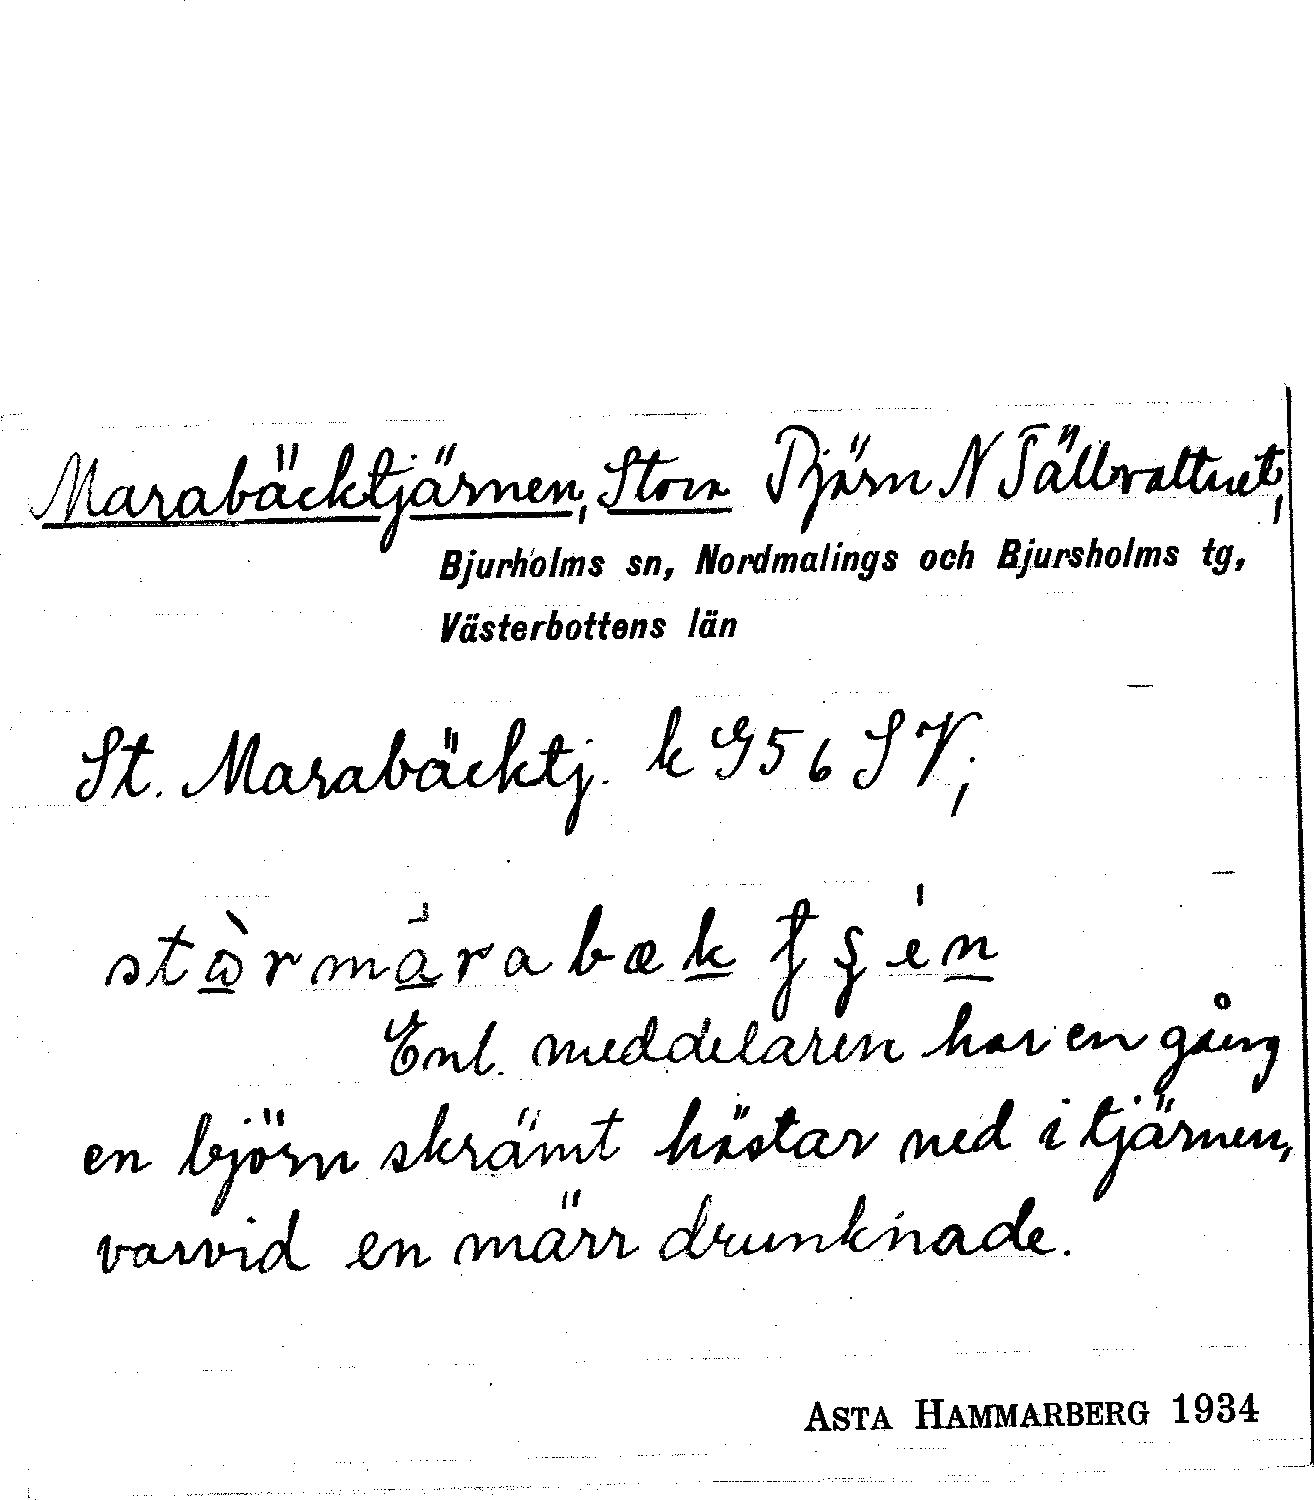 Marabäcktjärnen, Stora Tjärn N Tällvattnet,
Bjurholms sn, Nordmalings och Bjursholms tg,
Västerbottens län
St. Marabäcktj. k G56 SV;
Enl. meddelaren har en gång
en björn skrämt hästar ned i tjärnen,
varvid en märr drunknade.
ASTA HAMMARBERG 1934